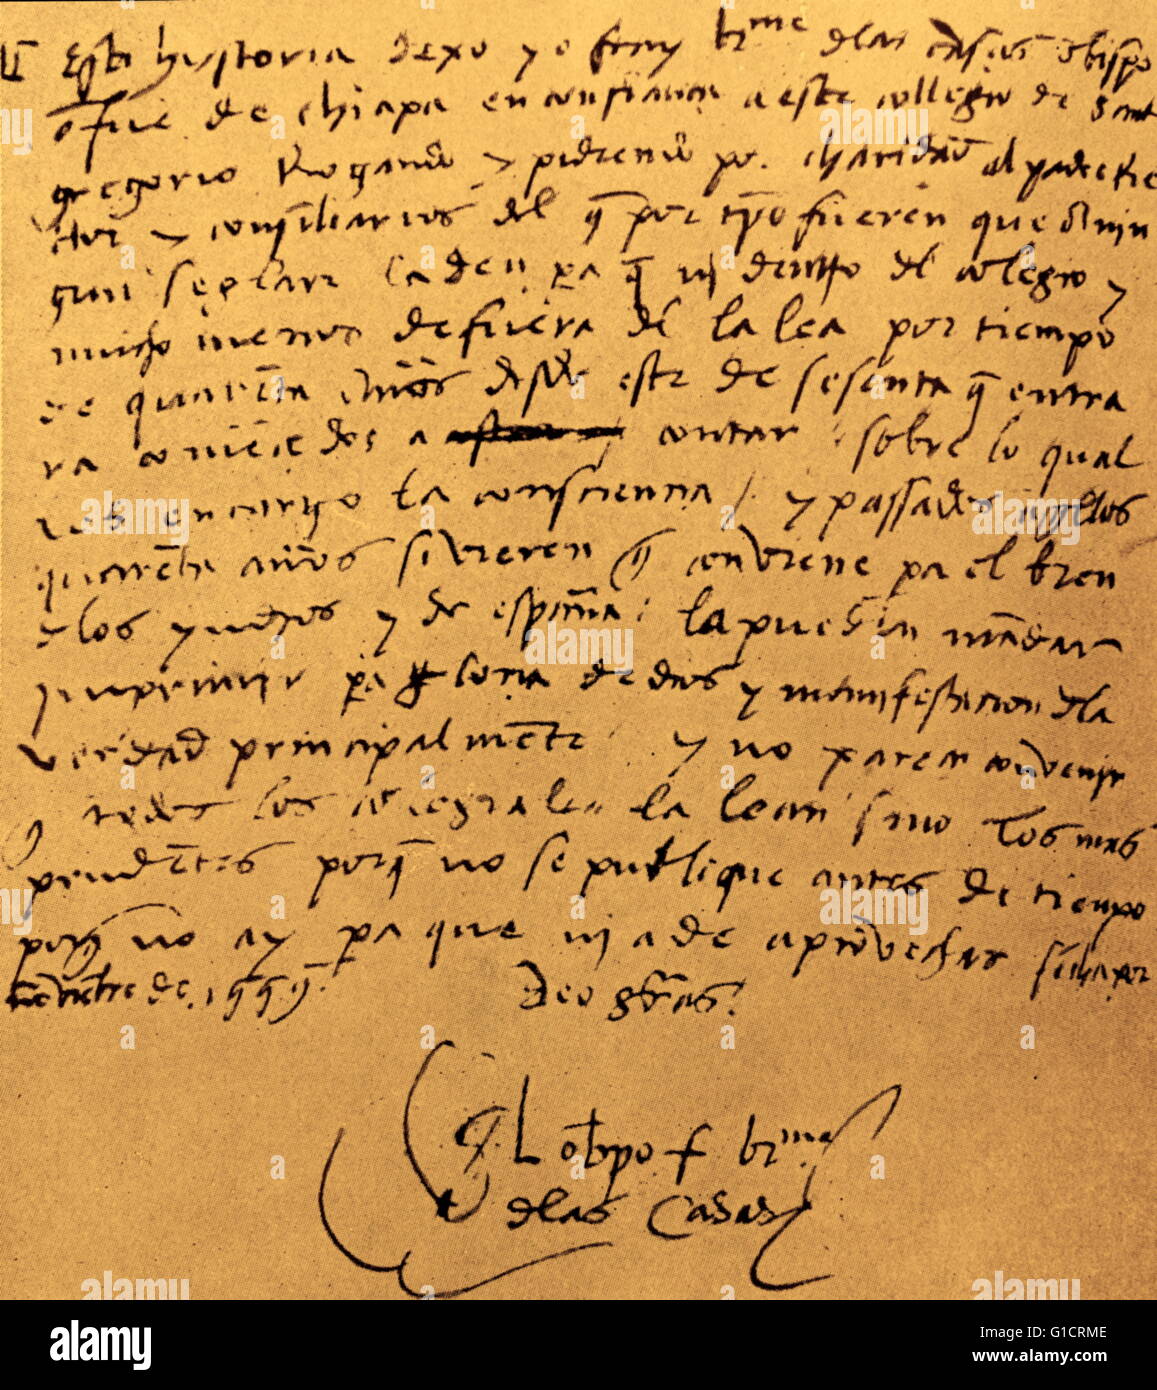 Esta hystoria dexo yo fray br.me delas casas obispo
q fue de chiapa en confiança a este collegio de sant
gregorio Rogando y pidiendo por charidad al padre Re
ctor y consiliarios del q por tpo fueren que a nin
gun seglar la den pa q ni dentro del colegio y
mucho menos de fuera del la lea por tiempo
de quarenta años desde este de sesenta q entra
ra comiēcēdos a contar sobre lo qual
les encargo la consciencia / y passados aqllos
quarenta años si vieren q conviene pa el bien
dlos yndios y de españa: la puedēn mādar
ymprimir pa gloria de dios y manifestacion dla
verdad principalmente y no parece convenir
q todos los colegiales la lean sino los mas
prudētes porq no se publique antes de tiempo
porq no ay pa que ni a de aprovechar fecha por
noviēbre de .1559. Deo grās.
El obpo f br.me
delas Casas
alamy
Image ID: G1CRME
www.alamy.com